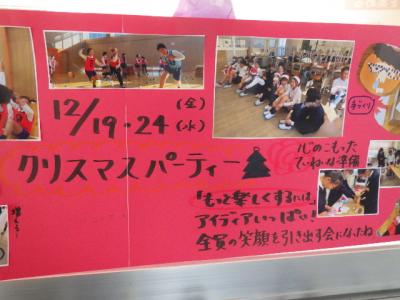 12/19・24
(金)
(水)
手づくり
クリスマスパーティー
心のこもった
ていねいな準備
「もっと楽しくするには」
アイディアいっぱい!
全員の笑顔を引き出す会になったね